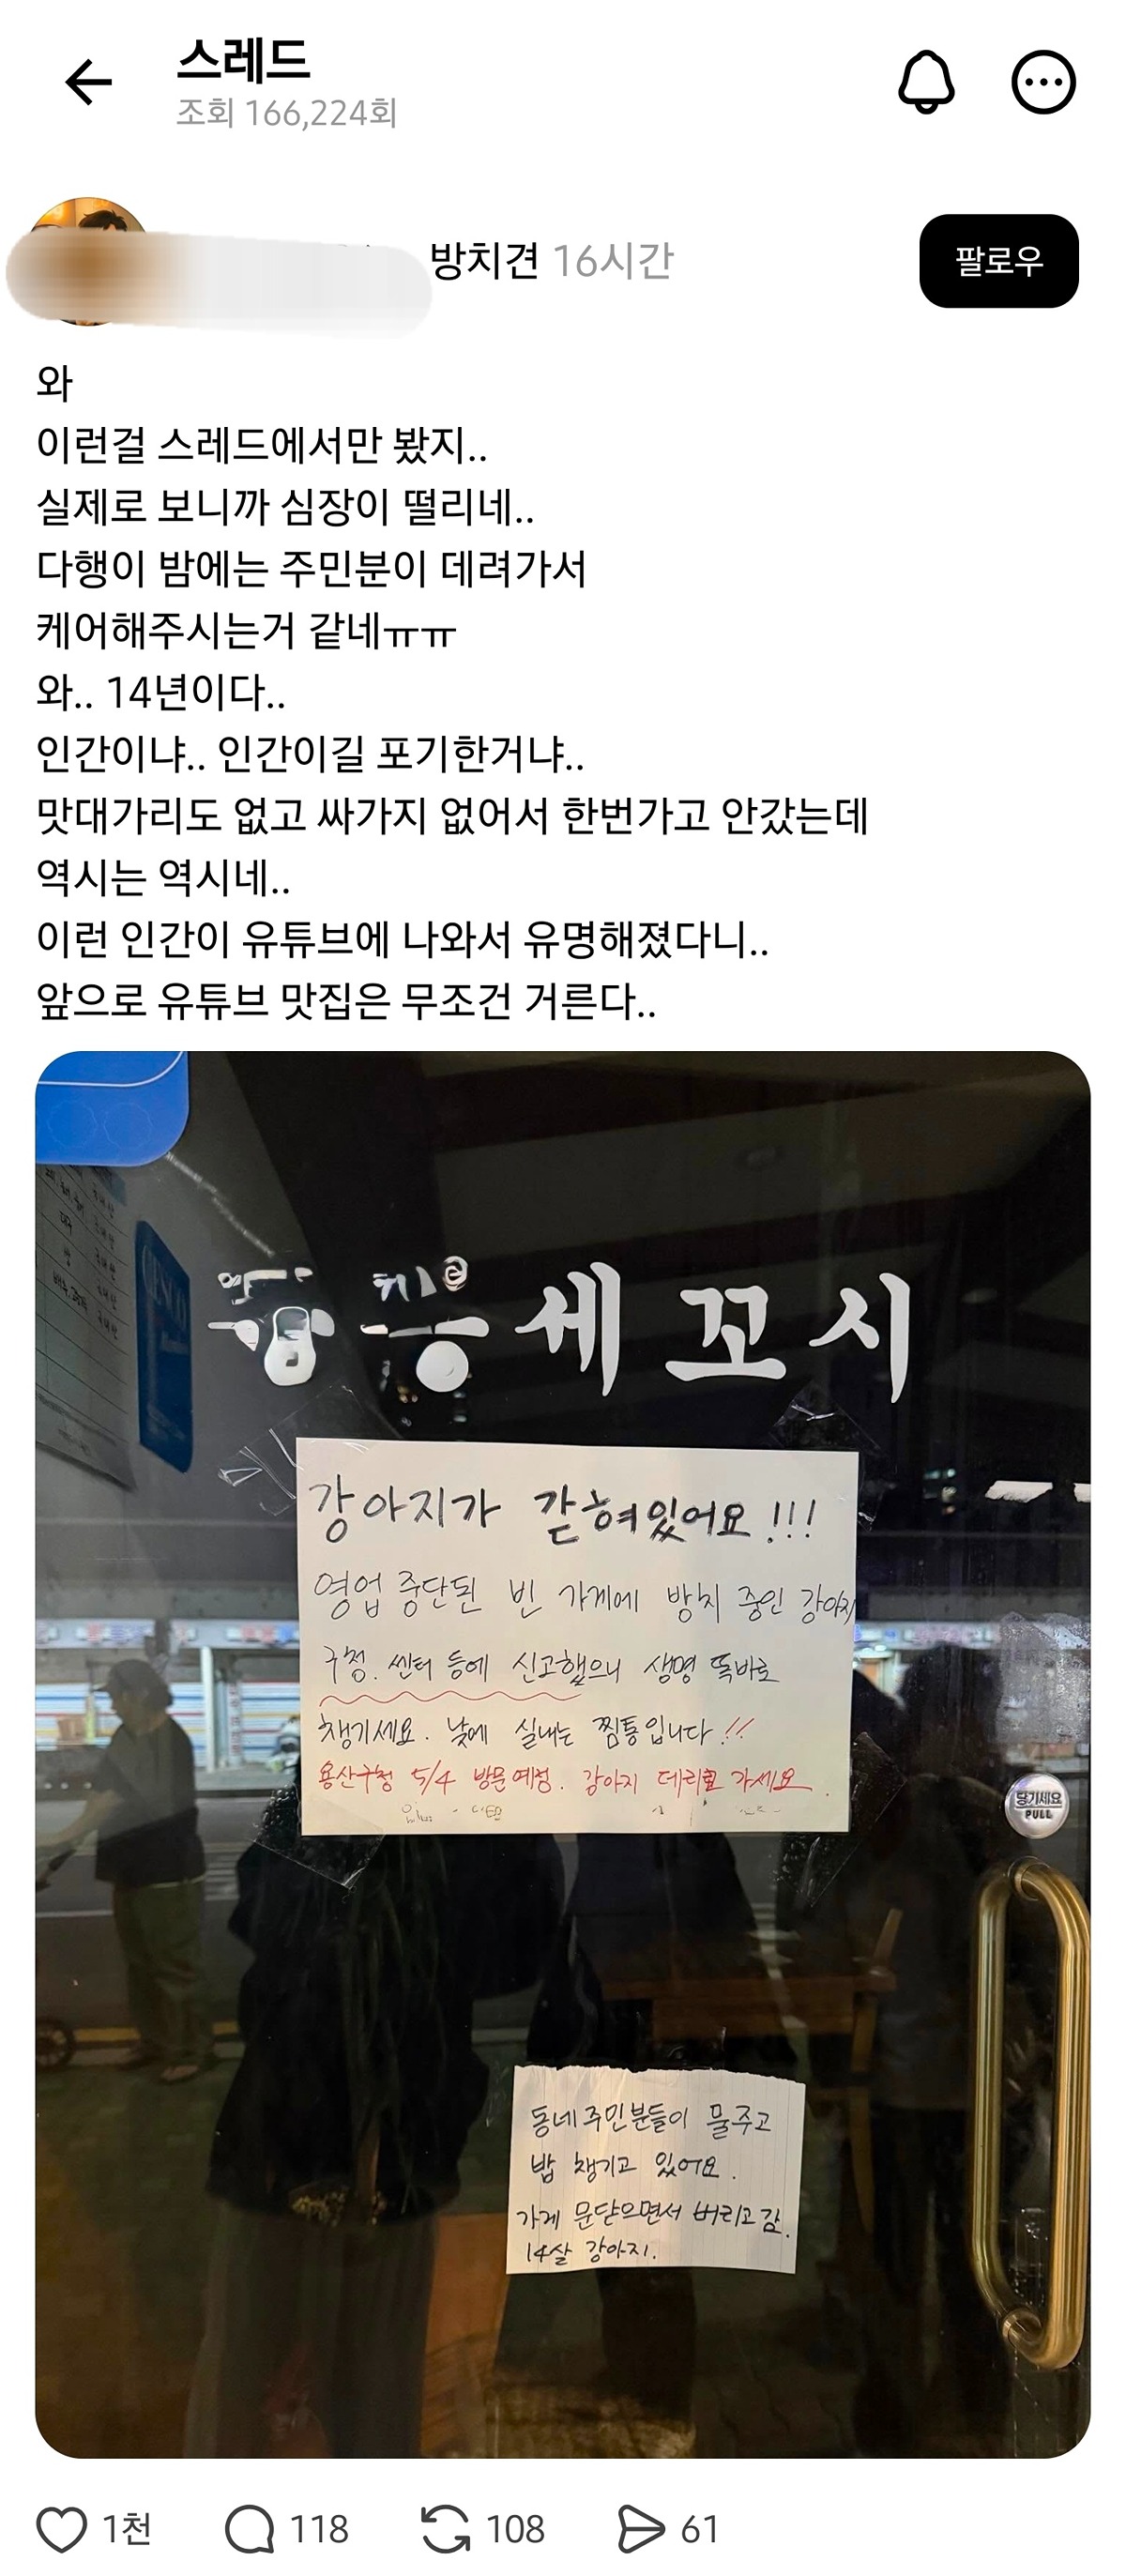 스레드
조회 166,224회
방치견 16시간
팔로우
와
이런걸 스레드에서만 봤지..
실제로 보니까 심장이 떨리네..
다행이 밤에는 주민분이 데려가서
케어해주시는거 같네ㅠㅠ
와.. 14년이다..
인간이냐.. 인간이길 포기한거냐..
맛대가리도 없고 싸가지 없어서 한번가고 안갔는데
역시는 역시네..
이런 인간이 유튜브에 나와서 유명해졌다니..
앞으로 유튜브 맛집은 무조건 거른다..
세꼬시
강아지가 갇혀있어요!!!
영업 중단된 빈 가게에 방치 중인 강아지
구청. 센터 등에 신고했으니 생명 똑바로
챙기세요. 낮에 실내는 찜통입니다!!
용산구청 5/4 방문예정. 강아지 데리고 가세요.
당기세요
PULL
동네주민분들이 물주고
밥 챙기고 있어요.
가게 문닫으면서 버리고 감.
14살 강아지.
1천
118
108
61